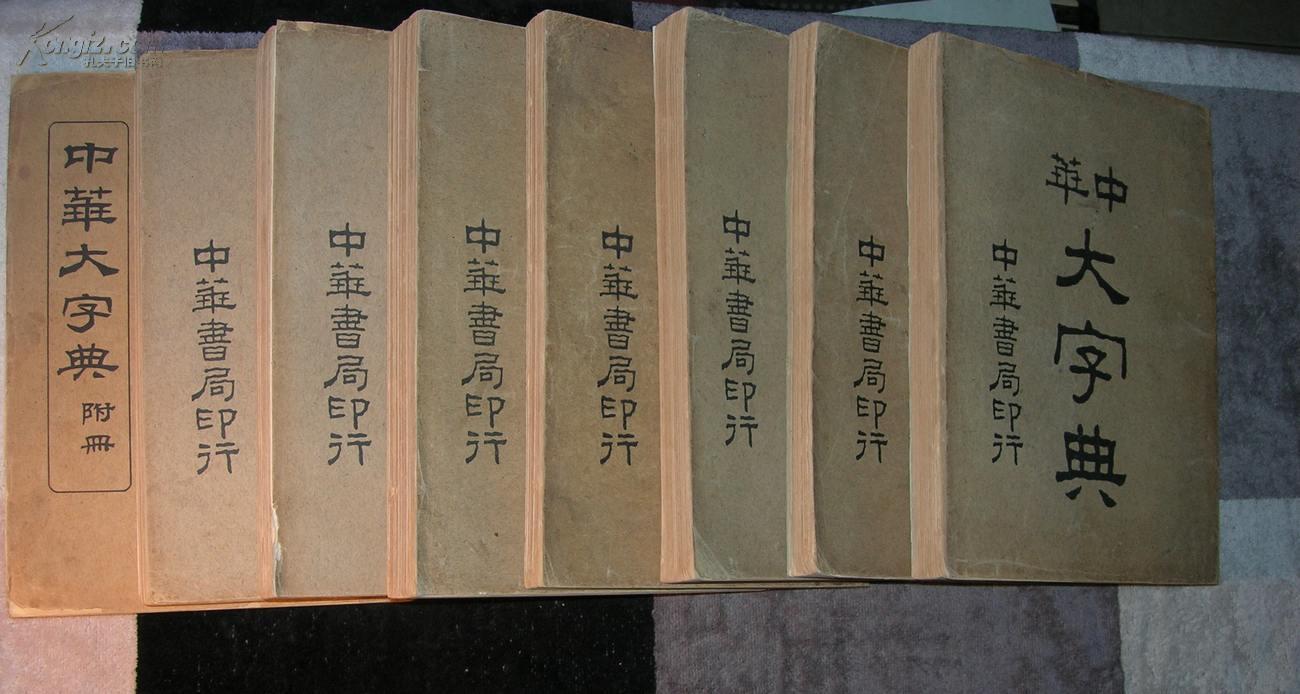 Kongfz.com
孔夫子旧书网
中華大字典
附冊
中華書局印行
中華書局印行
中華書局印行
中華書局印行
中華書局印行
中華書局印行
中華大字典
中華書局印行